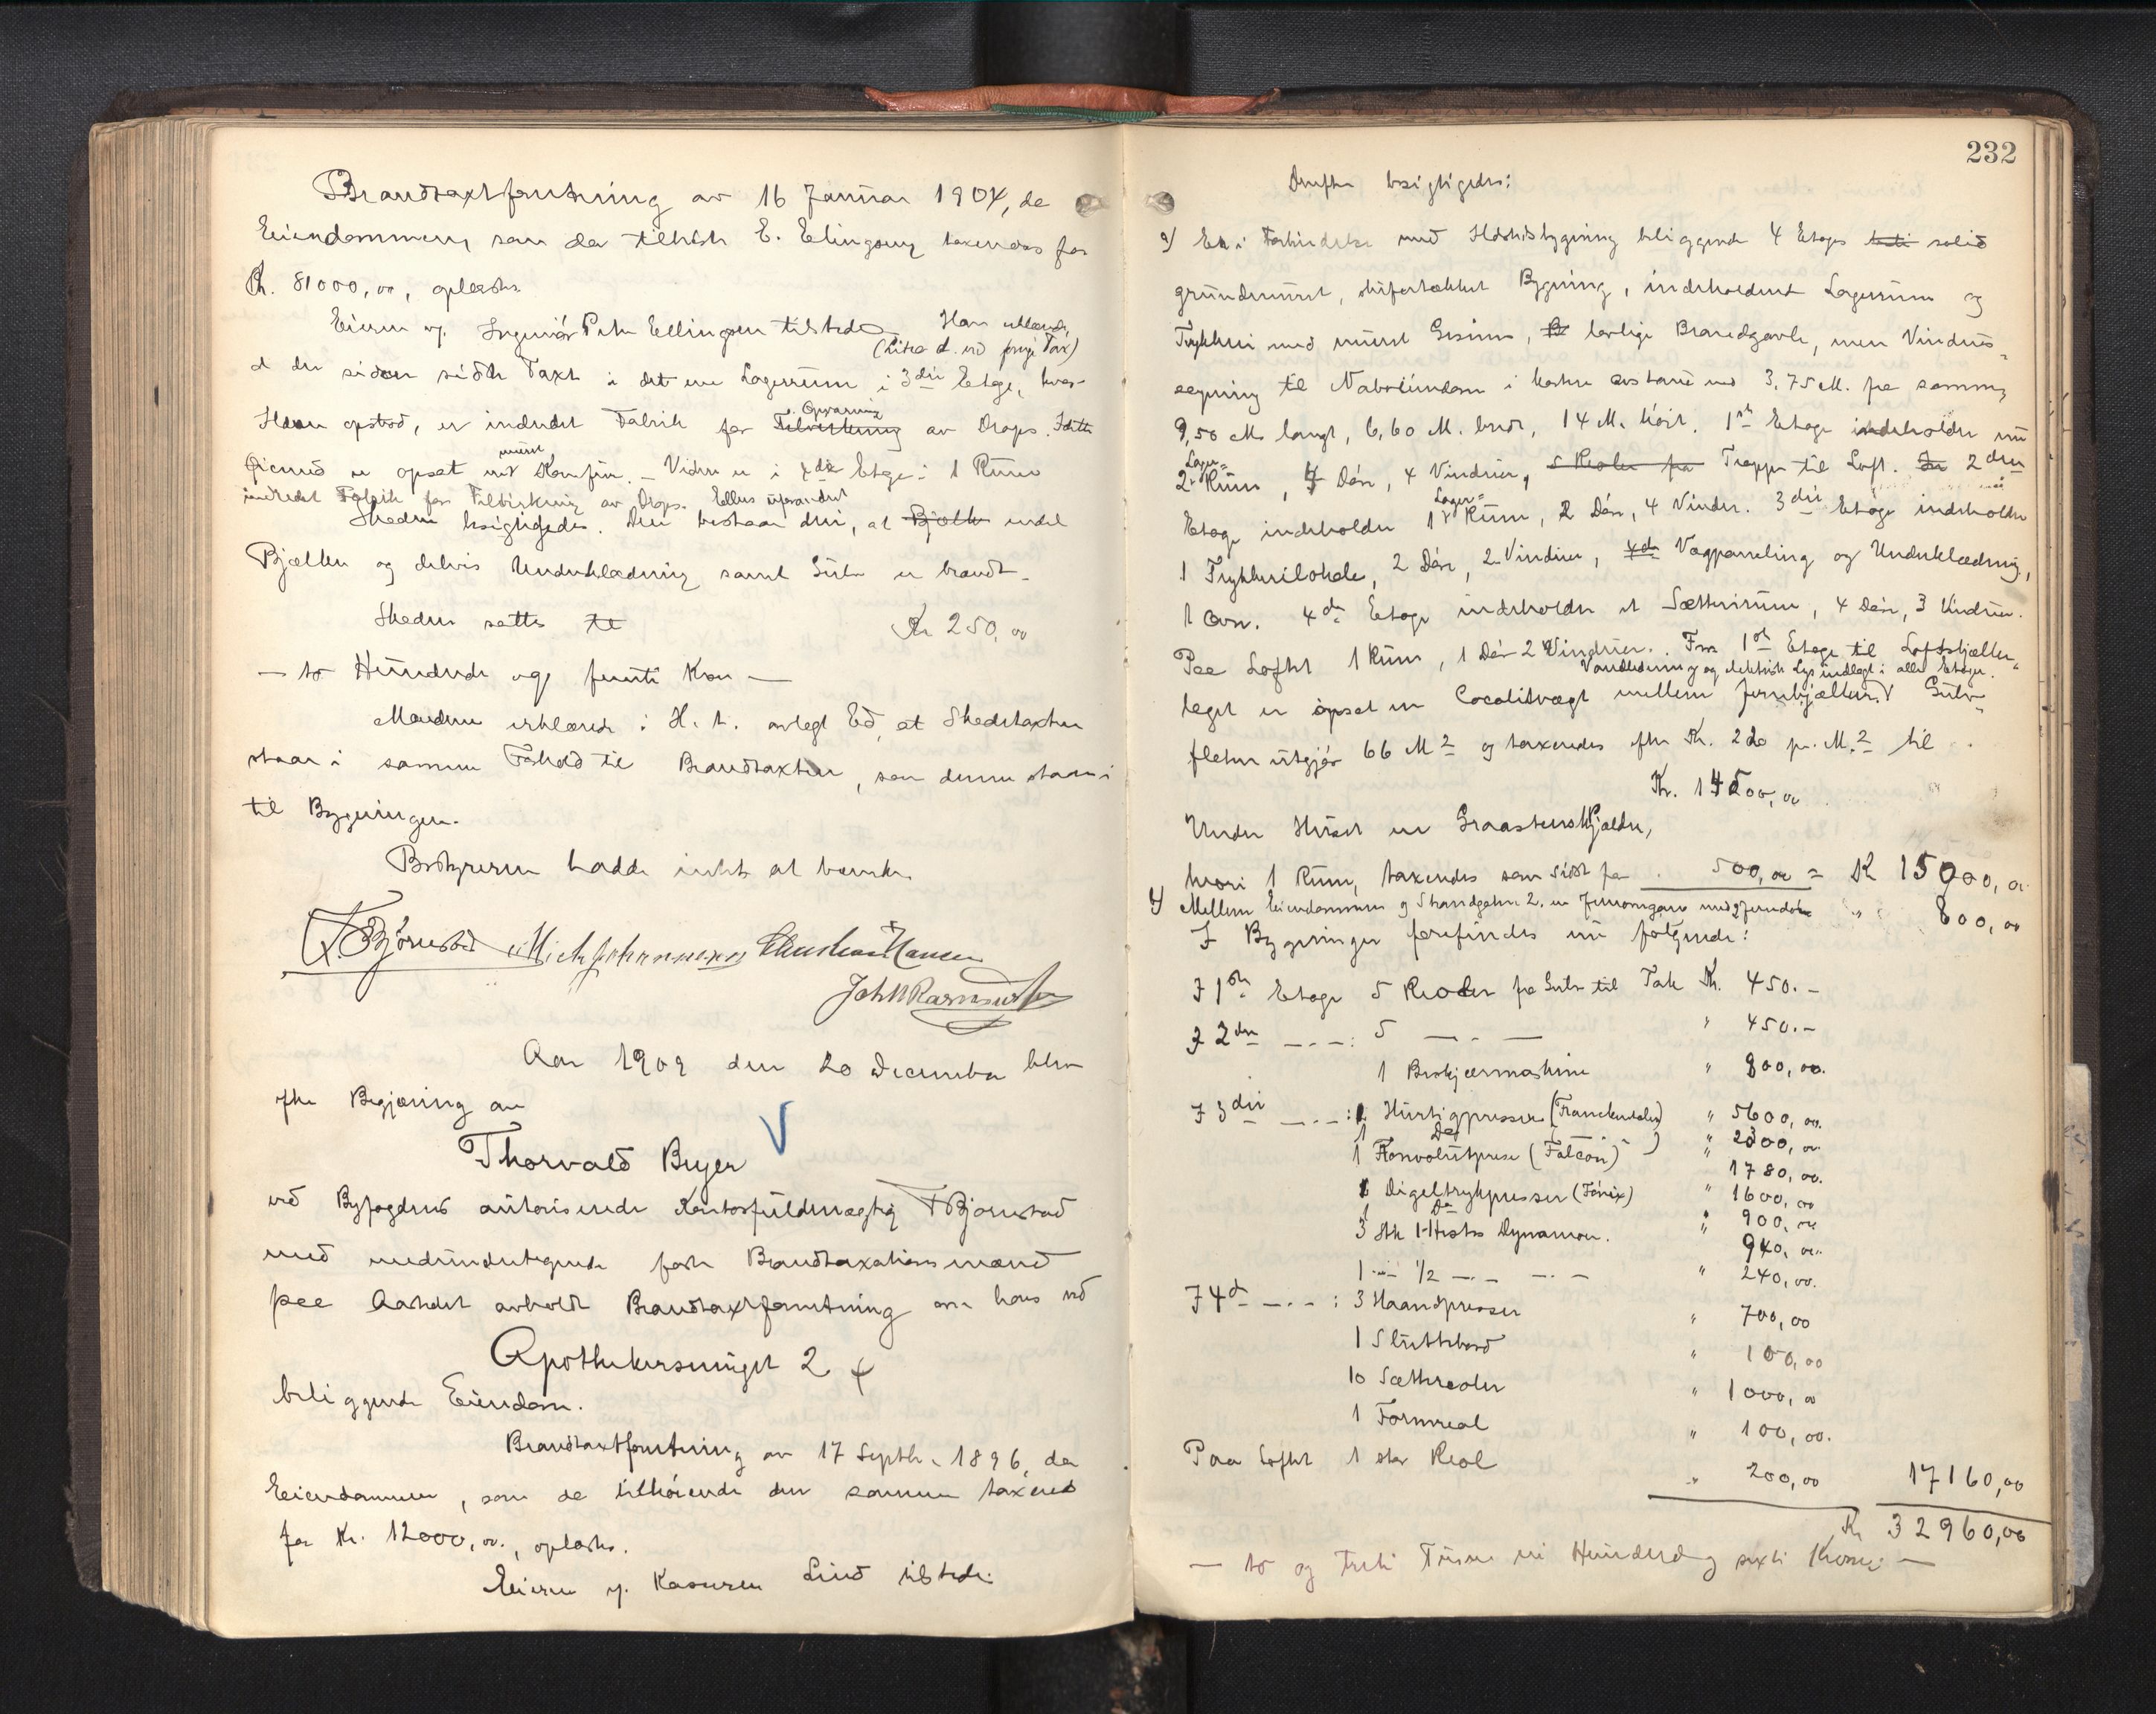 Brandtaxtforretning av 16 Januar 1904, da
Eiendommen, som da tilhørte E. Ellingsen taxeredes for
Kr. 81000,00, oplæstes
Eieren ved Ingeniør Peter Ellingsen tilstede. Han erklærede,
(Litra d. ved forrige Tax)
at der siden sidste Taxt i det ene Lagerrum i 3die Etage, hvor
Ilden opstod, er indredet Fabrik for Tilvirkning av Drops. I dette
Opvarming
Øiemed er opsat muret Komfur. – Videre er i 4de Etage: 1 Rum
indredet Fabrik for Tilvirkning av Drops. Ellers uforandret
Skaden besigtigedes. Den bestaar deri, at Bjælke endel
Bjælker og delvis Underklædning samt Gulv er brændt.
Skaden sættes til Kr 250,00
— to Hundrede og femti Kroner —
Mændene erklærede i H. t. avlagt Ed, at Skadetaxten
staar i samme Forhold til Brandtaxten, som denne staar i
til Bygningen.
Bestyreren hadde intet at bemerke.
F. Bjørnstad Mich Johannesen Christian Hansen
John Rasmussen
Aar 1909 den 20 December blev
efter Begjæring av
Thorvald Beyer
ved Byfogdens autoriserede Kontorfuldmægtig F Bjørnstad
med medundertegnede faste Brandtaxationsmænd
paa Aastedet avholdt Brandtaxtforretning over hans ved
Apothekersmuget 2
beliggende Eiendom.
Brandtaxtforretning av 17 Septbr. 1896, da
Eiendommen, som da tilhørende den samme taxered
for Kr. 12000,00., oplæstes.
Eieren v. Kasserer Lind tilstede.
232
Derefter besigtigedes:
a) En i Forbindelse med Hovedbygning beliggende 4 Etages solid
grundmuret, skifertækket Bygning, indeholdende Lagerrum og
Trykkeri med muret Gesims, lovlige Brandgavle, men Vindues=
aapning til Naboeiendom i kortere avstand end 3.75 M. fra samme,
9,50 M. langt, 6,60 M. bredt, 14 M. høit. 1ste Etage indeholder nu
2 Lager= Rum, 4 Døre, 4 Vinduer, 5 Reoler fra Trappe til Loft. 2den
Etage indeholder 1 Lager= Rum, 2 Døre, 4 Vinduer. 3die Etage indeholder
1 Trykkerilokale, 2 Døre, 2 Vinduer, Vægpaneling og Underklædning,
1 Ovn. 4de Etage indeholder et Sætterirum, 4 Døre, 3 Vinduer.
Paa Loftet 1 Rum, 1 Dør 2 Vinduer. Fra 1ste Etage til Loftsbjælke=
Vandledning og elektrisk Lys indlagt i alle Etager.
laget er opsat en Cocolitvægt mellem jernbjælker. Gulv=
flaten utgjør 66 M2 og taxeredes efter Kr. 220 pr. M.2 til
Kr. 14500,00
Under Huset en Graastenskjælder,
hvori 1 Rum, taxeredes som sidst for 500,00 = Kr 15000,00
b) Mellem Eiendommen og Strandgaten 2. en Jernomgang med 2 Jerndøre " 800,00
I Bygningen forefindes nu følgende:
I 1ste Etage 5 Reoler fra Gulv til Tak Kr. 450.–
I 2den —.—: 5 —.— " 450.–
1 Beskjærmaskine " 800,00.
I 3die —.—: 1 Hurtigpresse (Frankenthaler) " 5600,00.
1 Do " 2300,00
1 Konvolutpresse (Falcon) " 1780,00.
1 Digeltrykpresser (Fönix) " 1600,00
1 Do " 900,00
3 stk 1-Hestes Dynamoer. " 940,00.
1 —.— 1/2 —.— —.— " 240,00.
I 4de —.—: 3 Haandpresser " 700,00
1 Sluttebord " 100,00
10 Sætterreoler " 1000,00
1 Formreol " 100,00.
Paa Loftet 1 stor Reol " 200,00 17160,00
Kr 32960,00
— to og treti Tusen ni Hundrede og sexti Kroner —